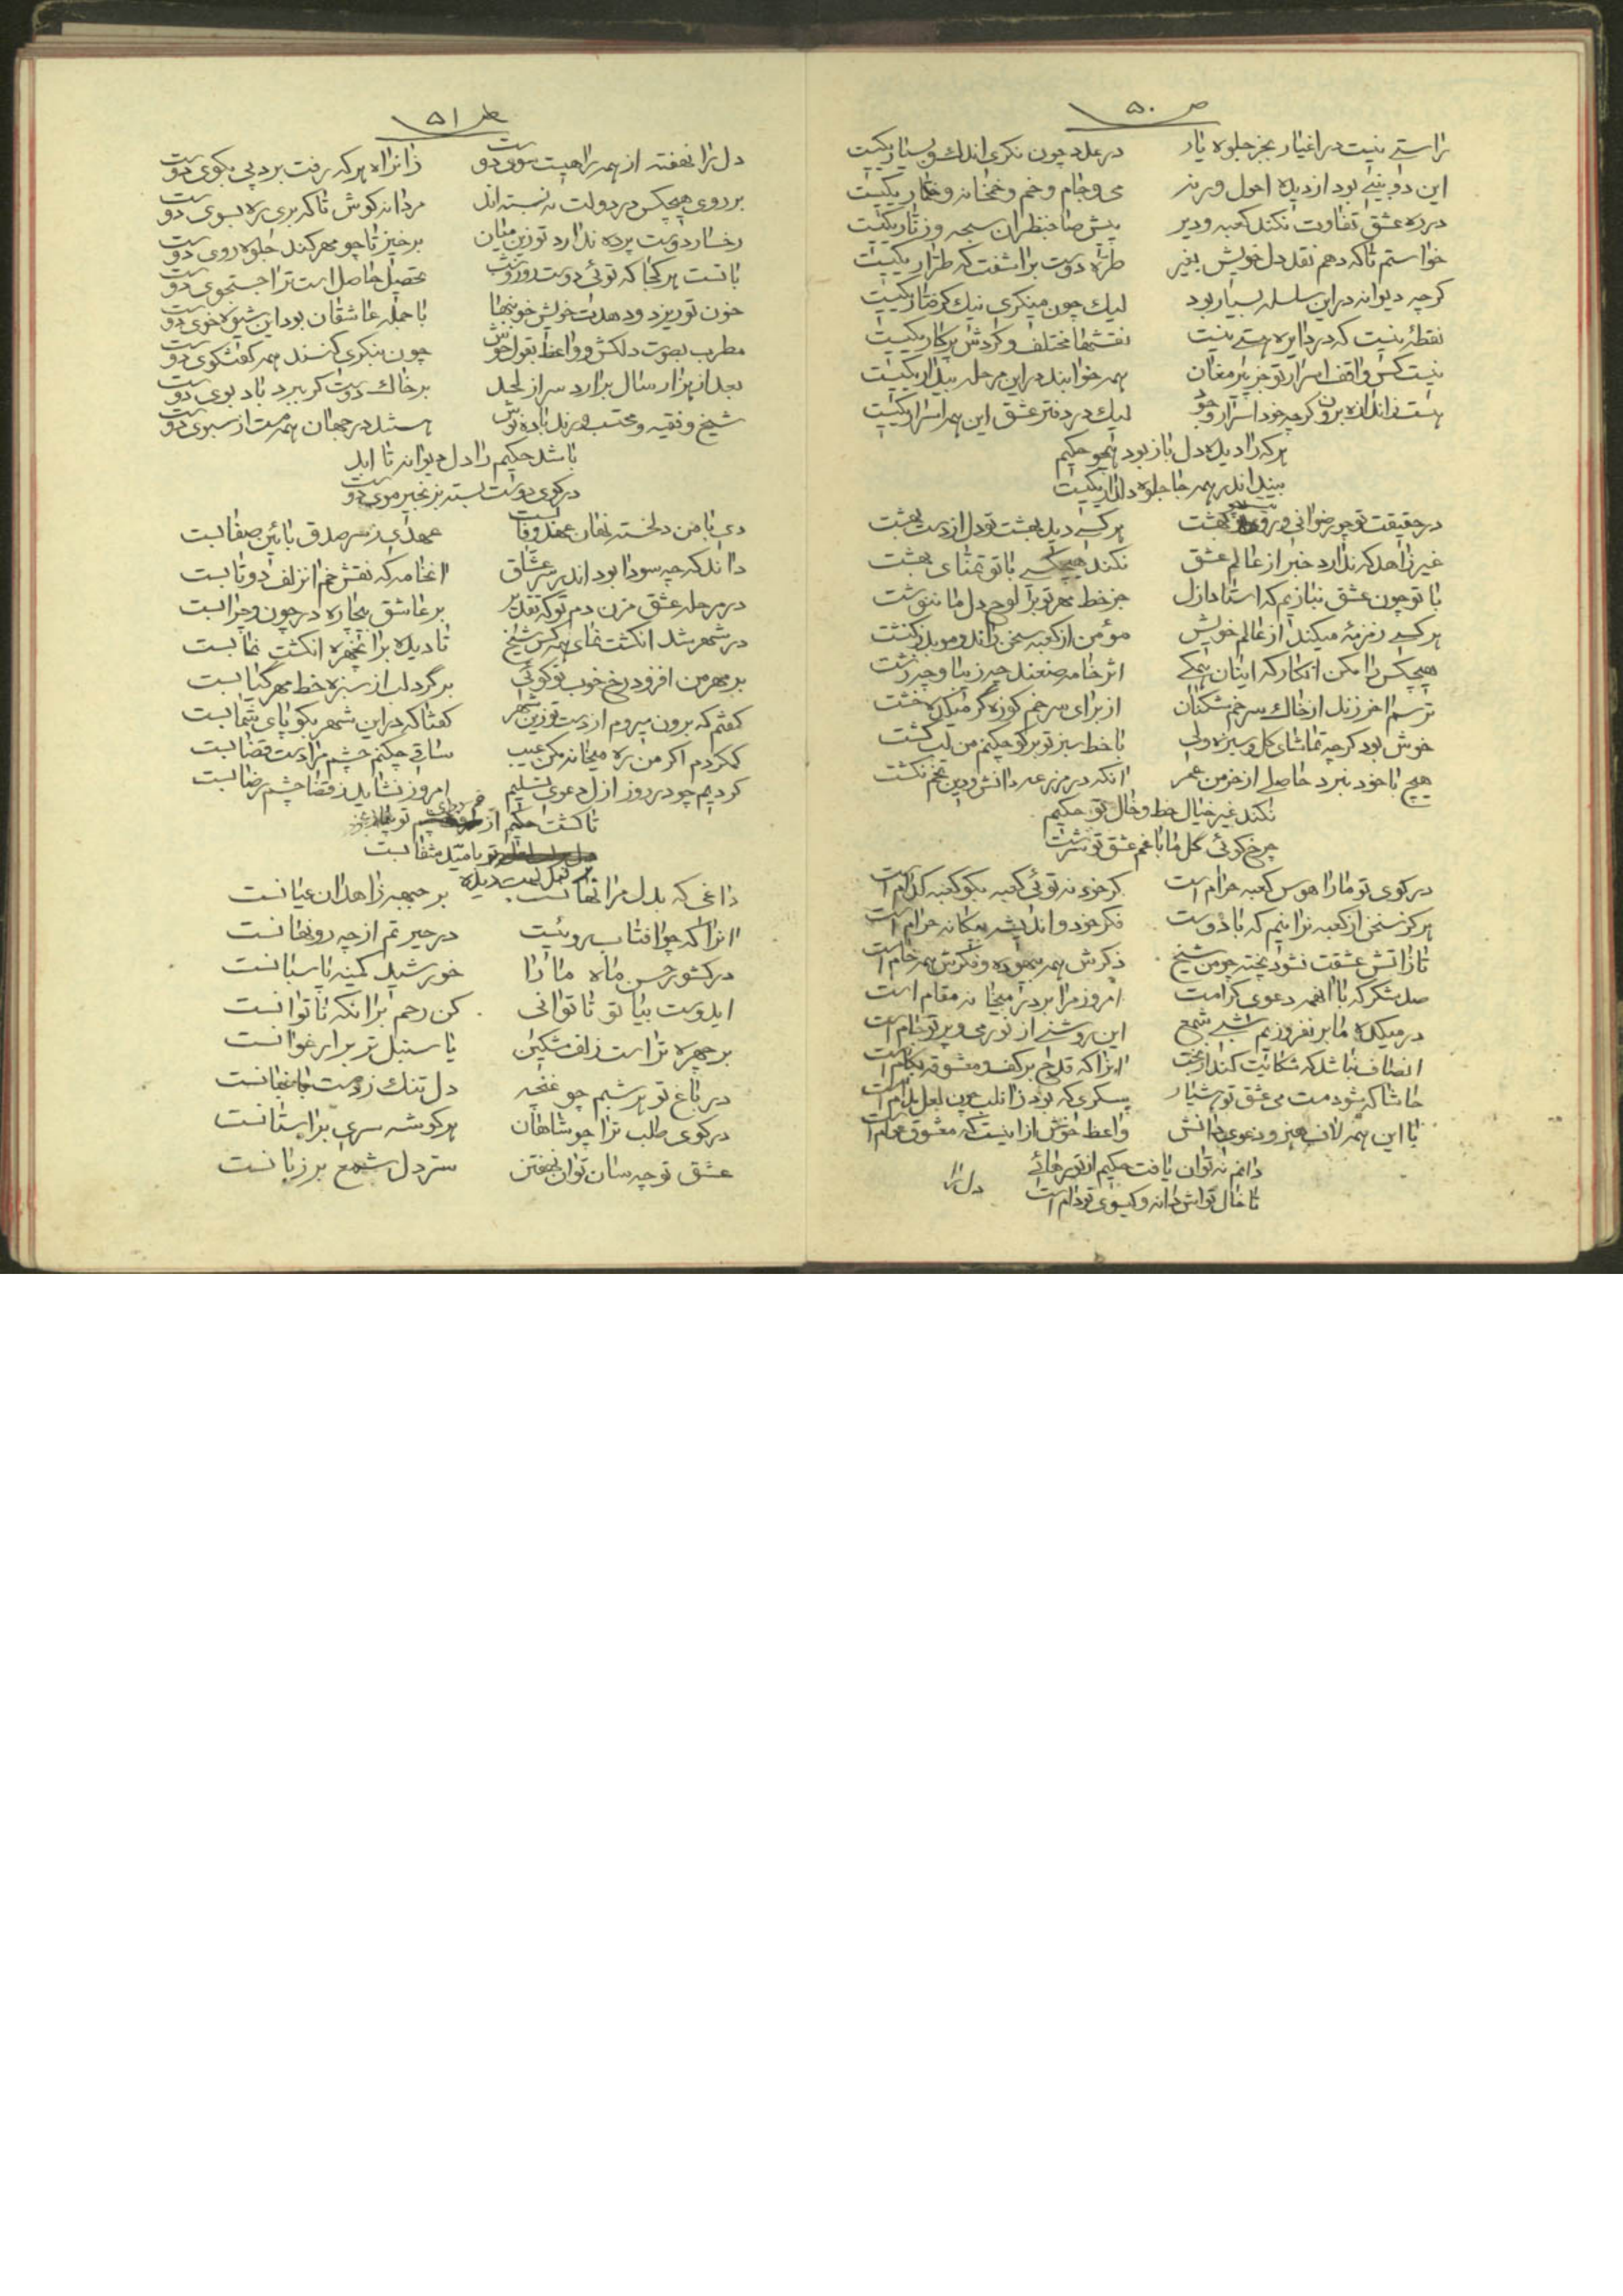 ص ۵۰
راستی نیست در اغیار بجز جلوه یار در عدد چون نگری اندک و بسیار یکیست
این دو بینی بود از دیده احول ورنه می و جام و خم و خمخانه و خمار یکیست
در ره عشق تفاوت نکند کعبه و دیر پیش صاحبنظران سبحه و زنار یکیست
خواستم تا که دهم نقد دل خویش بغیر طره دوست برآشفت که طرار یکیست
گرچه دیوانه در این سلسله بسیار بود لیک چون مینگری نیک گرفتار یکیست
نقطهٔ نیست که در دایره هستی نیست نقشها مختلف و گردش پرگار یکیست
نیست کس واقف اسرار تو جز پیر مغان همه خوابند در این مرحله بیدار یکیست
هست ز اندازه برون گرچه خود اسرار وجود لیک در دفتر عشق این همه اسرار یکیست
هر که را دیده دل باز بود همچو حکیم
بیند اندر همه جا جلوه دلدار یکیست
در حقیقت تو چو رضوانی و روی بهشت هر کسی دید بهشت تو دل از دست بهشت
غیر زاهد که ندارد خبر از عالم عشق نکند هیچکسی با تو تمنای بهشت
با تو چون عشق نبازیم که استاد ازل جز خط مهر تو بر لوح دل ما ننوشت
هر کسی زمزمهٔ میکند از عالم خویش مؤمن از کعبه سخن راند و موبد ز کنشت
هیچکس را مکن انکار که اینان همگی اثر خامه صنعند چه زیبا و چه زشت
ترسم آخر زند از خاک سر خم شکنان از برای سر خم کوزه گر میکده خشت
خوش بود گرچه تماشای گل و سبزه ولی با خط سبز تو بر گو چکنم من لب کشت
هیچ با خود نبرد حاصلی از خرمن عمر آنکه در مزرعه دانش و دین تخم نکشت
نکند غیر خیال خط و خال تو حکیم
چرخ گوئی گل ما با غم عشق تو سرشت
در کوی تو ما را هوس کعبه حرام است گر خود نه توئی کعبه بگو کعبه کدام است
هرگز سخن از کعبه نرانیم که با دوست فکر خود و اندیشه بیگانه حرام است
تا ز آتش عشقت نشود پخته چو من شیخ ذکرش همه بیهوده و فکرش همه خام است
صد شکر که با آنهمه دعوی کرامت امروز مرا بر در میخانه مقام است
در میکده ما بر نفروزیم شبی شمع این روشنی از نور می و پرتو جام است
انصاف نباشد که شکایت کند از بخت آنرا که قدح بر کف و معشوقه بکام است
حاشا که شود مست می عشق تو هشیار
با این همه لاف هنر و دعوی دانش واعظ خوش از اینست که معشوق عوام است
دانم نتوان یافت حکیم از تو رهائی
تا خال تواش دانه و گیسوی تو دام است
دل را
ص ۵۱
دل را نهفته از همه راهیست سوی دوست زانراه هر که رفت برد پی بکوی دوست
بر روی هیچکس در دولت نه بسته اند مردانه کوش تا که بری ره بسوی دوست
رخسار دوست پرده ندارد تو زین میان برخیز تا چو مهر کند جلوه روی دوست
با تست هر کجا که توئی دوست روز و شب تحصیل حاصل است ترا جستجوی دوست
خون تو ریزد و دهدت خویش خونبها با جمله عاشقان بود این شیوه خوی دوست
مطرب بصوت دلکش و واعظ بقول خوش چون بنگری کنند همه گفتگوی دوست
بعد از هزار سال برآرد سر از لحد بر خاک دوست گر ببرد باد بوی دوست
شیخ و فقیه و محتسب و رند باده نوش هستند در جهان همه مست از سبوی دوست
باشد حکیم را دل دیوانه تا ابد
در کوی دوست بسته بزنجیر موی دوست
دی با من دلخسته نهان عهد وفا بست عهدی ز سر صدق بآئین صفا بست
داند که چه سودا بود اندر سر عشاق آنخامه که نقش خم آنزلف دو تا بست
در مرحله عشق مزن دم تو که تقدیر بر عاشق بیچاره در چون و چرا بست
در شهر شد انگشت نمای همه کس شیخ تا دیده بر آنچهره انگشت نما بست
بر مهر من افزود رخ خوب تو گوئی بر گرد لب از سبزه خط مهر گیا بست
گفتم که برون میروم از دست تو زین شهر گفتا که در این شهر بگو پای شما بست
گم کردم اگر من ره میخانه مکن عیب ساقی چکنم چشم مرا دست قضا بست
کردیم چو در روز ازل دعوی تسلیم امروز نشاید ز قضا چشم رضا بست
تا گشت حکیم از
بامید شفا بست
داغی که بدل مرا نهانست بر جبهه زاهدان عیانست
آنرا که چو آفتاب روئیست در حیرتم از چه رو نهانست
در کشور حسن ماه ما را خورشید کمینه پاسبانست
ایدوست بیا تو تا توانی کن رحم بر آنکه ناتوانست
بر چهره تر است زلف مشکین یا سنبل تر بر ارغوانست
در باغ تو هر شبم چو غنچه دل تنگ ز دست باغبانست
در کوی طلب ترا چو شاهان هر گوشه سری بر آستانست
عشق تو چه سان توان نهفتن سر دل شمع بر زبانست